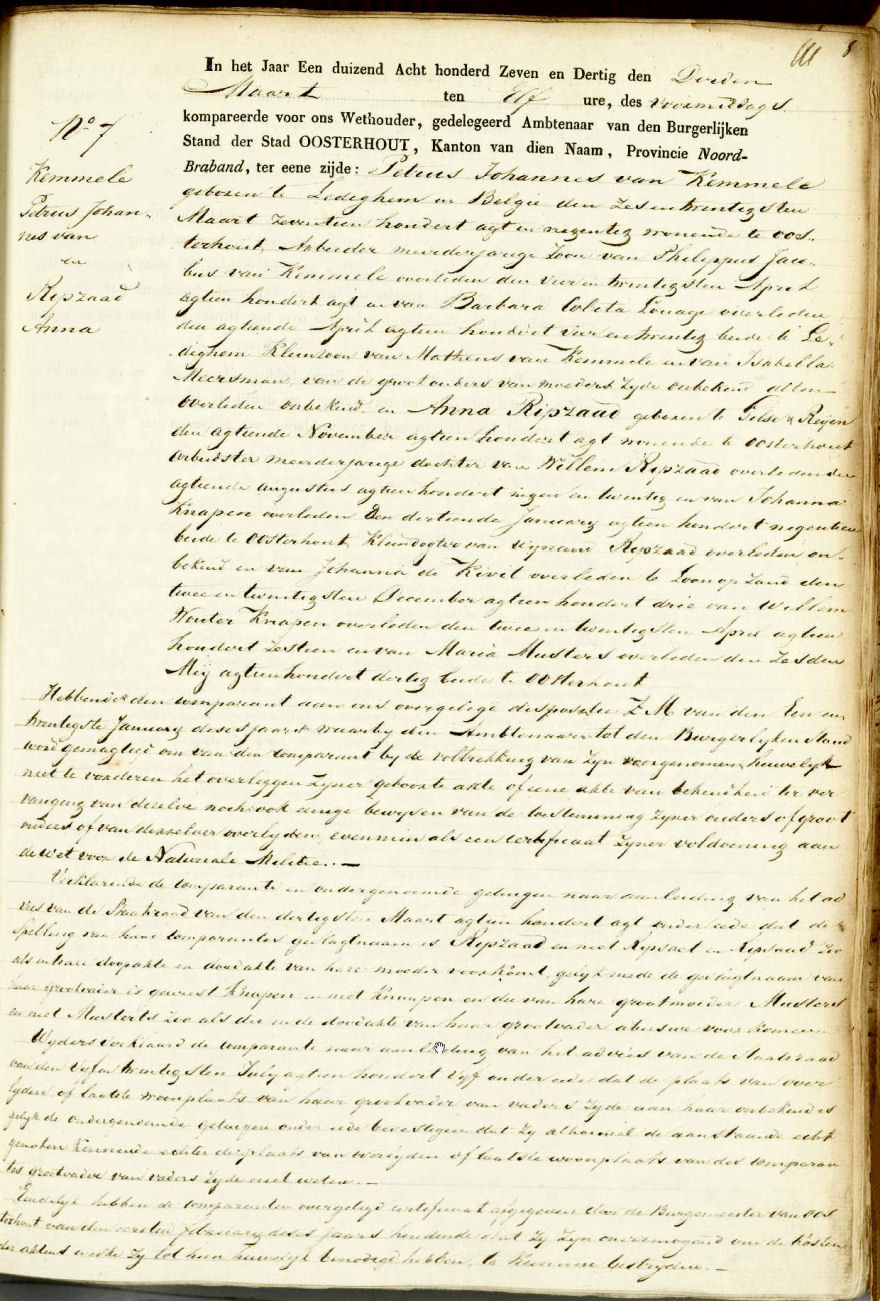 8
In het Jaar Een duizend Acht honderd Zeven en Dertig den Derden
Maart ten Elf ure, des voormiddags
kompareerde voor ons Wethouder, gedelegeerd Ambtenaar van den Burgerlijken
Stand der Stad OOSTERHOUT, Kanton van dien Naam, Provincie Noord-
Braband, ter eene zijde: Petrus Johannes van Kemmele
geboren te Ledeghem in Belgie den Zes en twentigsten
Maart Zeventien hondert agt en negentig wonende te Oos-
terhout, Arbeider meerderjarige Zoon van Philippus Jaco-
bus van Kemmele overleden den vier en twentigsten April
agtien hondert agt en van Barbara Coleta Louage overleden
den agtiende April agtien hondert vier en twentig beide te Le-
dighem Kleinzoon van Matheus van Kemmele en van Isabella
Meersman, van de grootouders van moeders zyde onbekend allen
overleden onbekend. en Anna Ripzaad geboren te Gilse & Reijen
den agtiende November agtien hondert agt wonende te Oosterhout
Arbeidster meerderjarige dochter van Willem Ripzaad overleden den
agtiende augustus agtien hondert negen en twentig en van Johanna
Knapen overleden den dertiende January agtien hondert negentien
beide te Oosterhout, Kleindogter van Wynand Ripzaad overleden on-
bekend en van Johanna de Kivit overleden te Loon op Zand den
twee en twentigsten December agtien hondert drie van Willem
Wouter Knapen overleden den twee en twentigsten April agtien
hondert Zestien en van Maria Musters overleden den Zesden
Mey agtien hondert dertig beide te Oosterhout
Hebbende den comparant aan ons overgelegd dispositie Z.M. van den Een en
twentigste January deses jaars waarby den Ambtenaar tot den Burgerlyken Stand
word gemagtied om van den comparant by de voltrekking van zyn voorgenomen huwelyk
niet te vorderen het overleggen zyner geboorte akte of eene akte van bekendheid ter ver
vanging van deselve noch ook eenige bewysen van de toestemming zyner ouders of groot
ouders of van derzelver overlyden, evenmin als een certificaat zyner voldoening aan
de wet voor de Nationale Militie. —
Verklarende de comparante en ondergenoemde getuigen naar aanleiding van het ad
vies van de Staatsraad van den dertigsten Maart agtien hondert agt onder eede dat de
spelling van hare comparantes geslagtnaam is Ripzaad en niet Ripsaet en Ripsaad zoo
als in hare doopakte en doodakte van hare moeder voorkomt, gelyk mede de geslagtnaam van
haar grootvader is geweest Knapen en niet Knaapen en die van hare grootmoeder Musters
en niet Musterts zoo als die in de doodakte van haar grootvader abusive voorkomen.
Wyders verklaard de comparante naar aanleiding van het advies van de Staatsraad
van den vyf en twentigsten July agtien hondert vyf onder eede dat de plaats van over
lyden of laatste woonplaats van haar grootvader van vaders zyde aan haar onbekend is
gelyk de ondergenoemde getuigen onder eede bevestigen dat zy alhoewel de aanstaande echt
genoten kennende echter de plaats van overlyden of laatste woonplaats van des comparan
tes grootvader van vaders zyde niet weten. —
Eindelyk hebben de comparanten overgelegd certificaat afgegeven door de Burgemeester van Oos
terhout van den eersten February deses jaars houdende dat zy zyn onvermogend om de kosten
der aktens welke zy tot hun huwelyk benodigd hebben, te kunnen bestryden. —
No 7
Kemmele
Petrus Johan-
nes van
en
Ripzaad
Anna